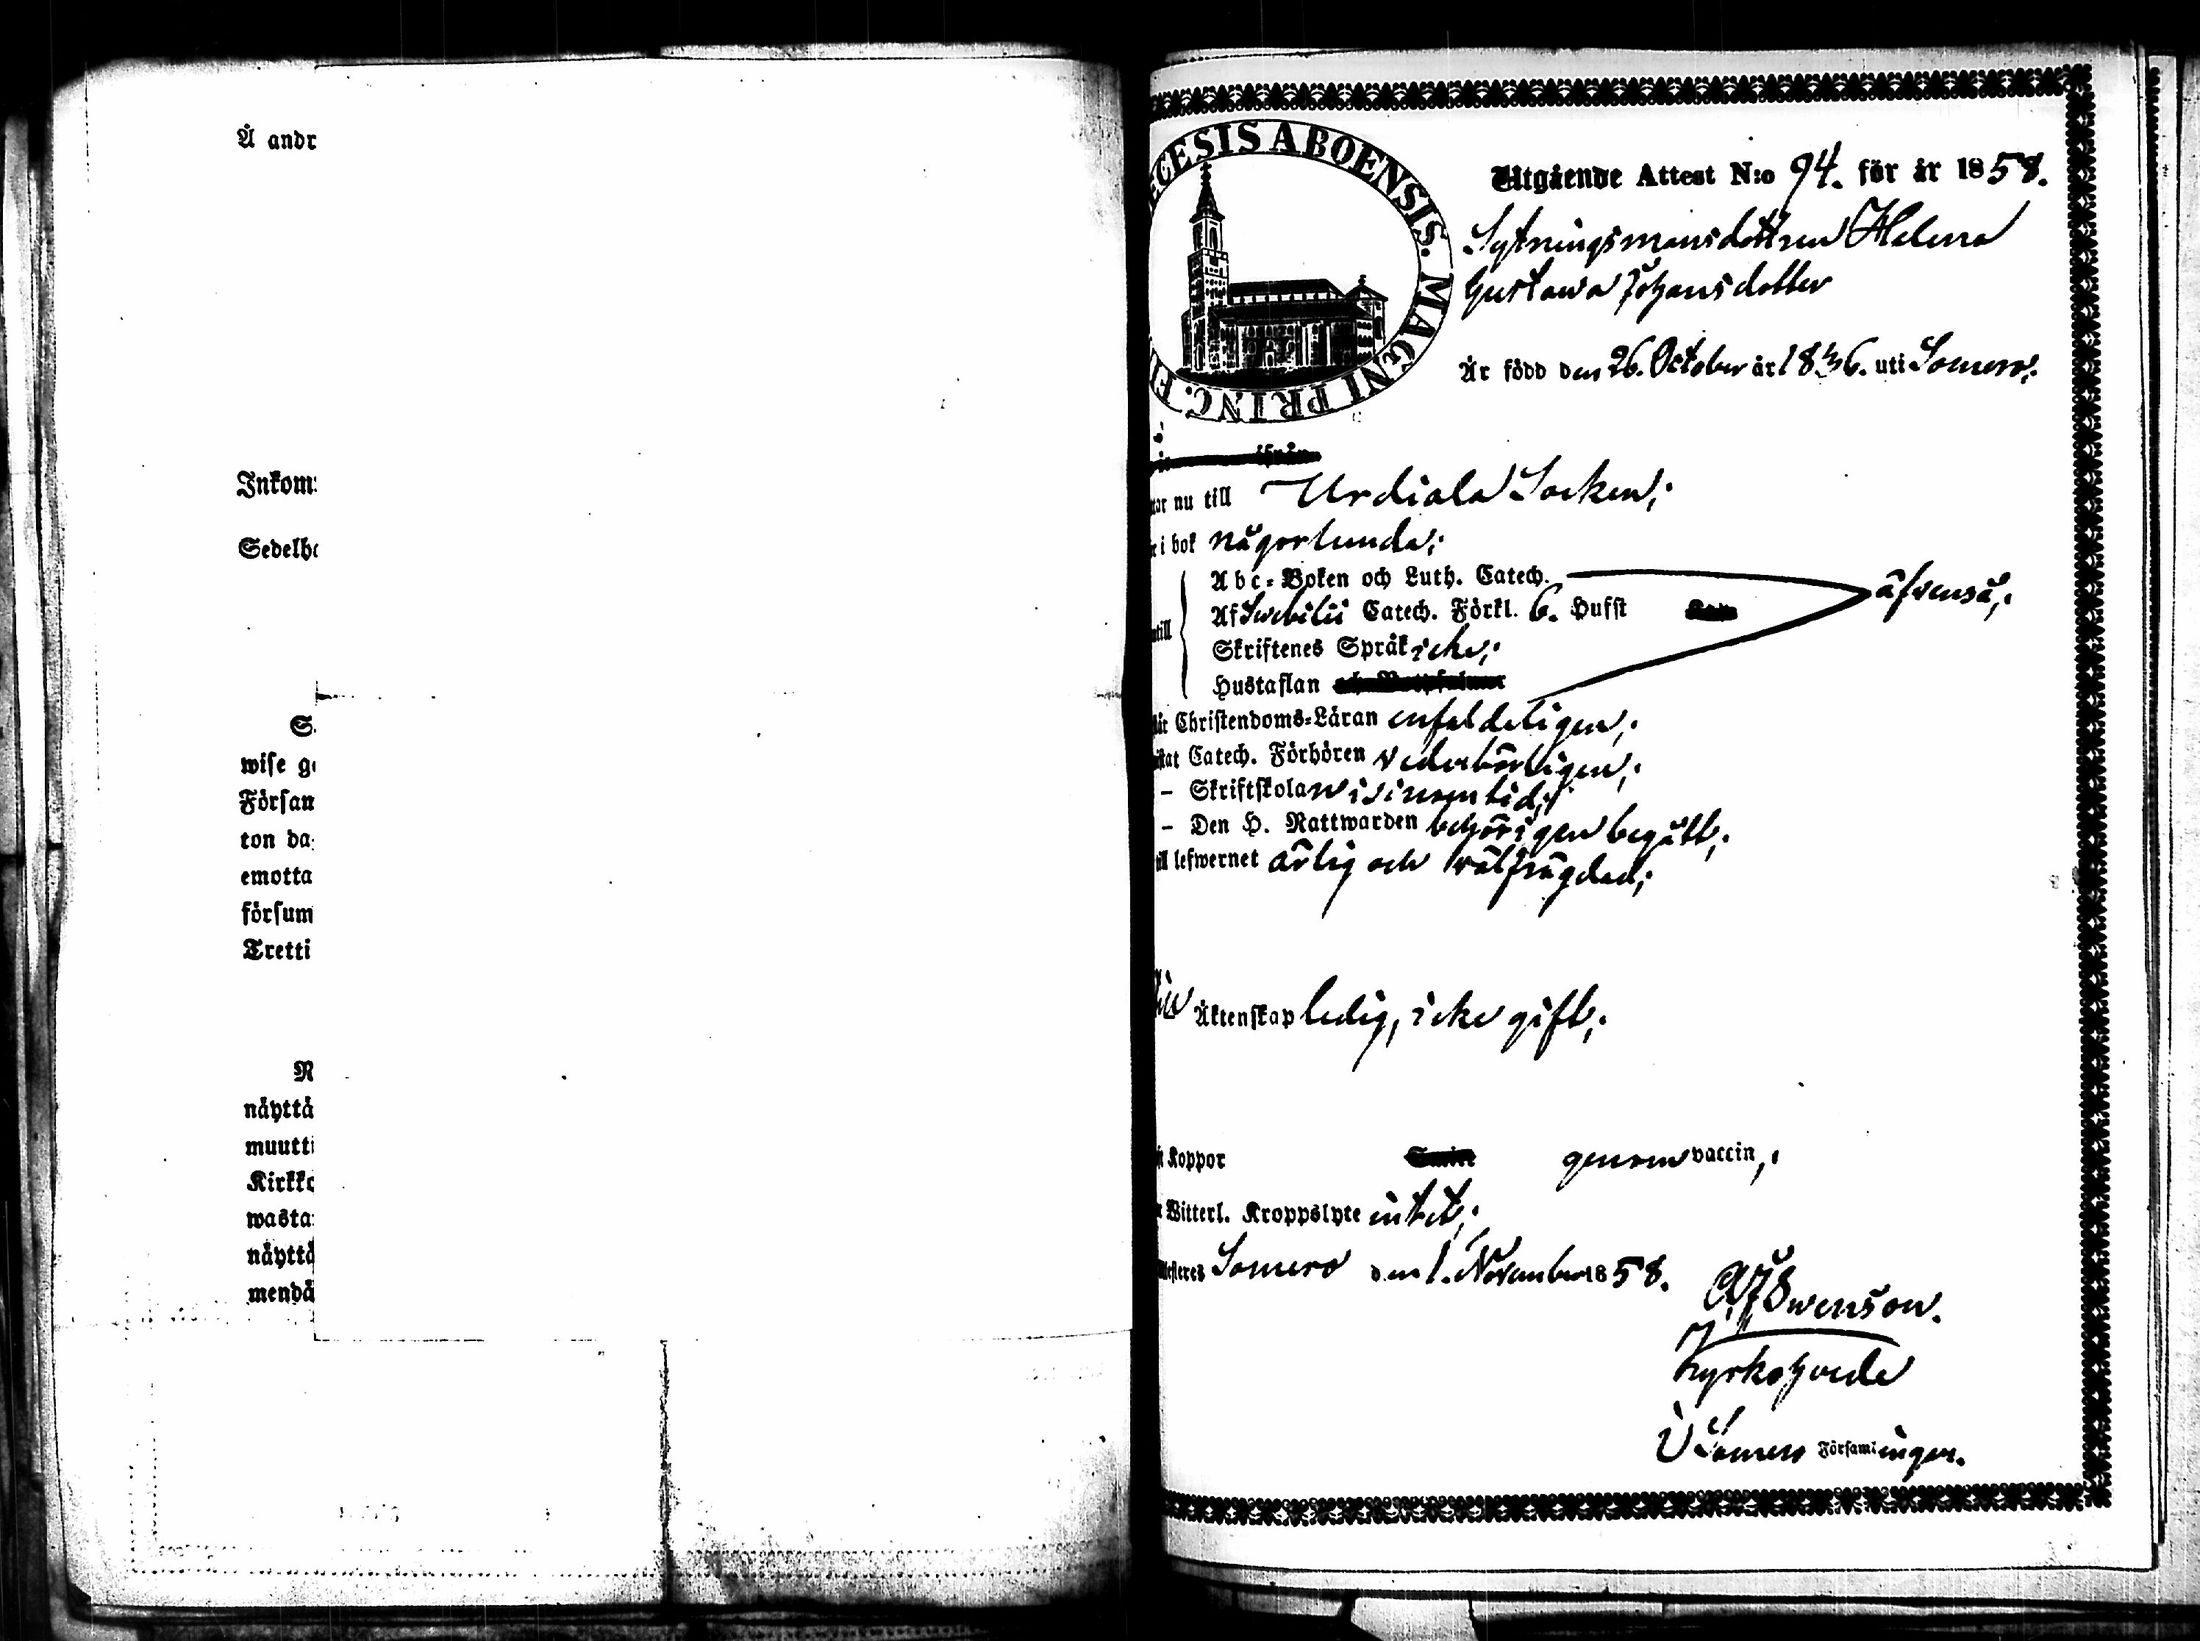 Å andr
Inkom:
Sedelh
S.
wise g
Försam
ton da
emotta
försum
Tretti
N
näyttä
muutti
Kirkko
wasta
näyttä
mendä
ECESIS ABOENSIS. MAGNI PRINC. FI
Utgående Attest N:o 94. för år 1858.
Sytningsmansdottren Helena
Gustawa Johansdotter
Är född den 26. October år 1836. uti Somero;
ifrån
nu till Urdiala Socken;
i bok någorlunda;
Abc-Boken och Luth. Catech.
Af Swebilii Catech. Förkl. 6. Hufst
äfvenså;
Skriftenes Språk icke;
till
Hustaflan
Christendoms-Läran enfaldeligen;
Catech. Förhören vederbörligen;
– Skriftskolan i sinom tid;
– Den H. Nattwarden behörigen begått;
till lefwernet ärlig och wälfrägdad;
Äktenskap ledig, icke gift;
Koppor genom vaccin;
Witterl. Kroppslyte intet;
Somero den 1. November 1858.
Swenson.
Kyrkoherde
i Somero Församlingar.